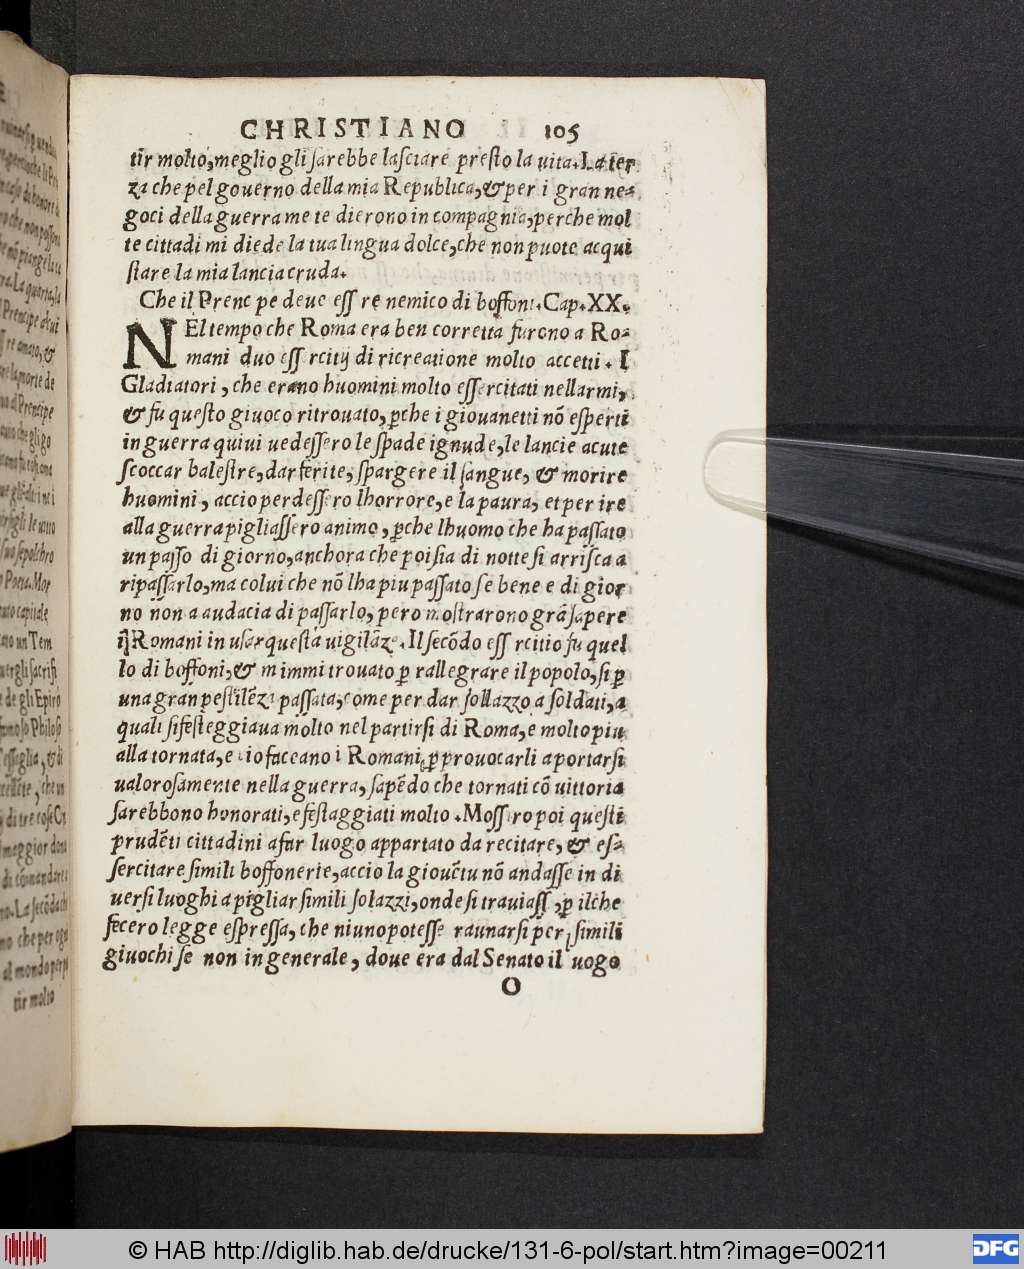 CHRISTIANO 105
tir molto, meglio gli ſarebbe laſciare preſto la uita. La ter
za che pel gouerno della mia Republica, & per i gran ne-
goci della guerra me te dierono in compagnia, perche mol
te cittadi mi diede la tua lingua dolce, che non puote acqui
ſtare la mia lancia cruda.
Che il Prenc pe deue eſſ re nemico di boffoni. Cap. XX.
NEl tempo che Roma era ben corretta furono a Ro-
mani duo eſſ rcitij di ricreatione molto accetti. I
Gladiatori, che erano huomini molto eſſercitati nellarmi,
& fu queſto giuoco ritrouato, ꝑche i giouanetti nō eſperti
in guerra quiui uedeſſero le ſpade ignude, le lancie acute
ſcoccar baleſtre, dar ferite, ſpargere il ſangue, & morire
huomini, accio perdeſſero lhorrore, e la paura, et per ire
alla guerra pigliaſſero animo, ꝑche lhuomo che ha paſſato
un paſſo di giorno, anchora che poi ſia di notte ſi arriſca a
ripaſſarlo, ma colui che nō lha piu paſſato ſe bene e di gior
no non a audacia di paſſarlo, pero moſtrarono grā ſapere
Romani in uſar queſta uigilāze. Il ſecōdo eſſ rcitio fu quel
lo di boffoni, & m immi trouato ꝑ rallegrare il popolo, ſi ꝑ
una gran peſtilēza paſſata, come per dar ſollazzo a ſoldati, a
quali ſi feſteggiaua molto nel partirſi di Roma, e molto piu
alla tornata, e cio faceano i Romani, ꝑ prouocarli a portarſi
ualoroſamente nella guerra, ſapēdo che tornati cō uittoria
ſarebbono honorati, e feſtaggiati molto. Moſſ ro poi queſti
prudēti cittadini a far luogo appartato da recitare, & eſ-
ſercitare ſimili boffonerie, accio la giouētu nō andaſſe in di
uerſi luoghi a pigliar ſimili ſolazzi, onde ſi trauiaſſ, ꝑ ilche
fecero legge eſpreſſa, che niuno poteſſe raunarſi per ſimili
giuochi ſe non in generale, doue era dal Senato il uogo
O
tir molto
© HAB http://diglib.hab.de/drucke/131-6-pol/start.htm?image=00211
DFG